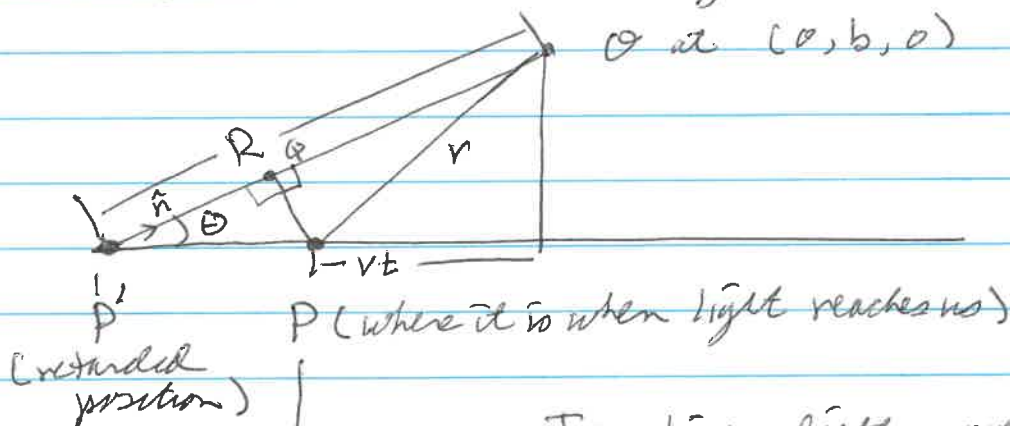 O at (0, b, 0)
R
Q
r
n̂
θ
vt
P'
P (where it is when light reaches us)
(retarded
position)